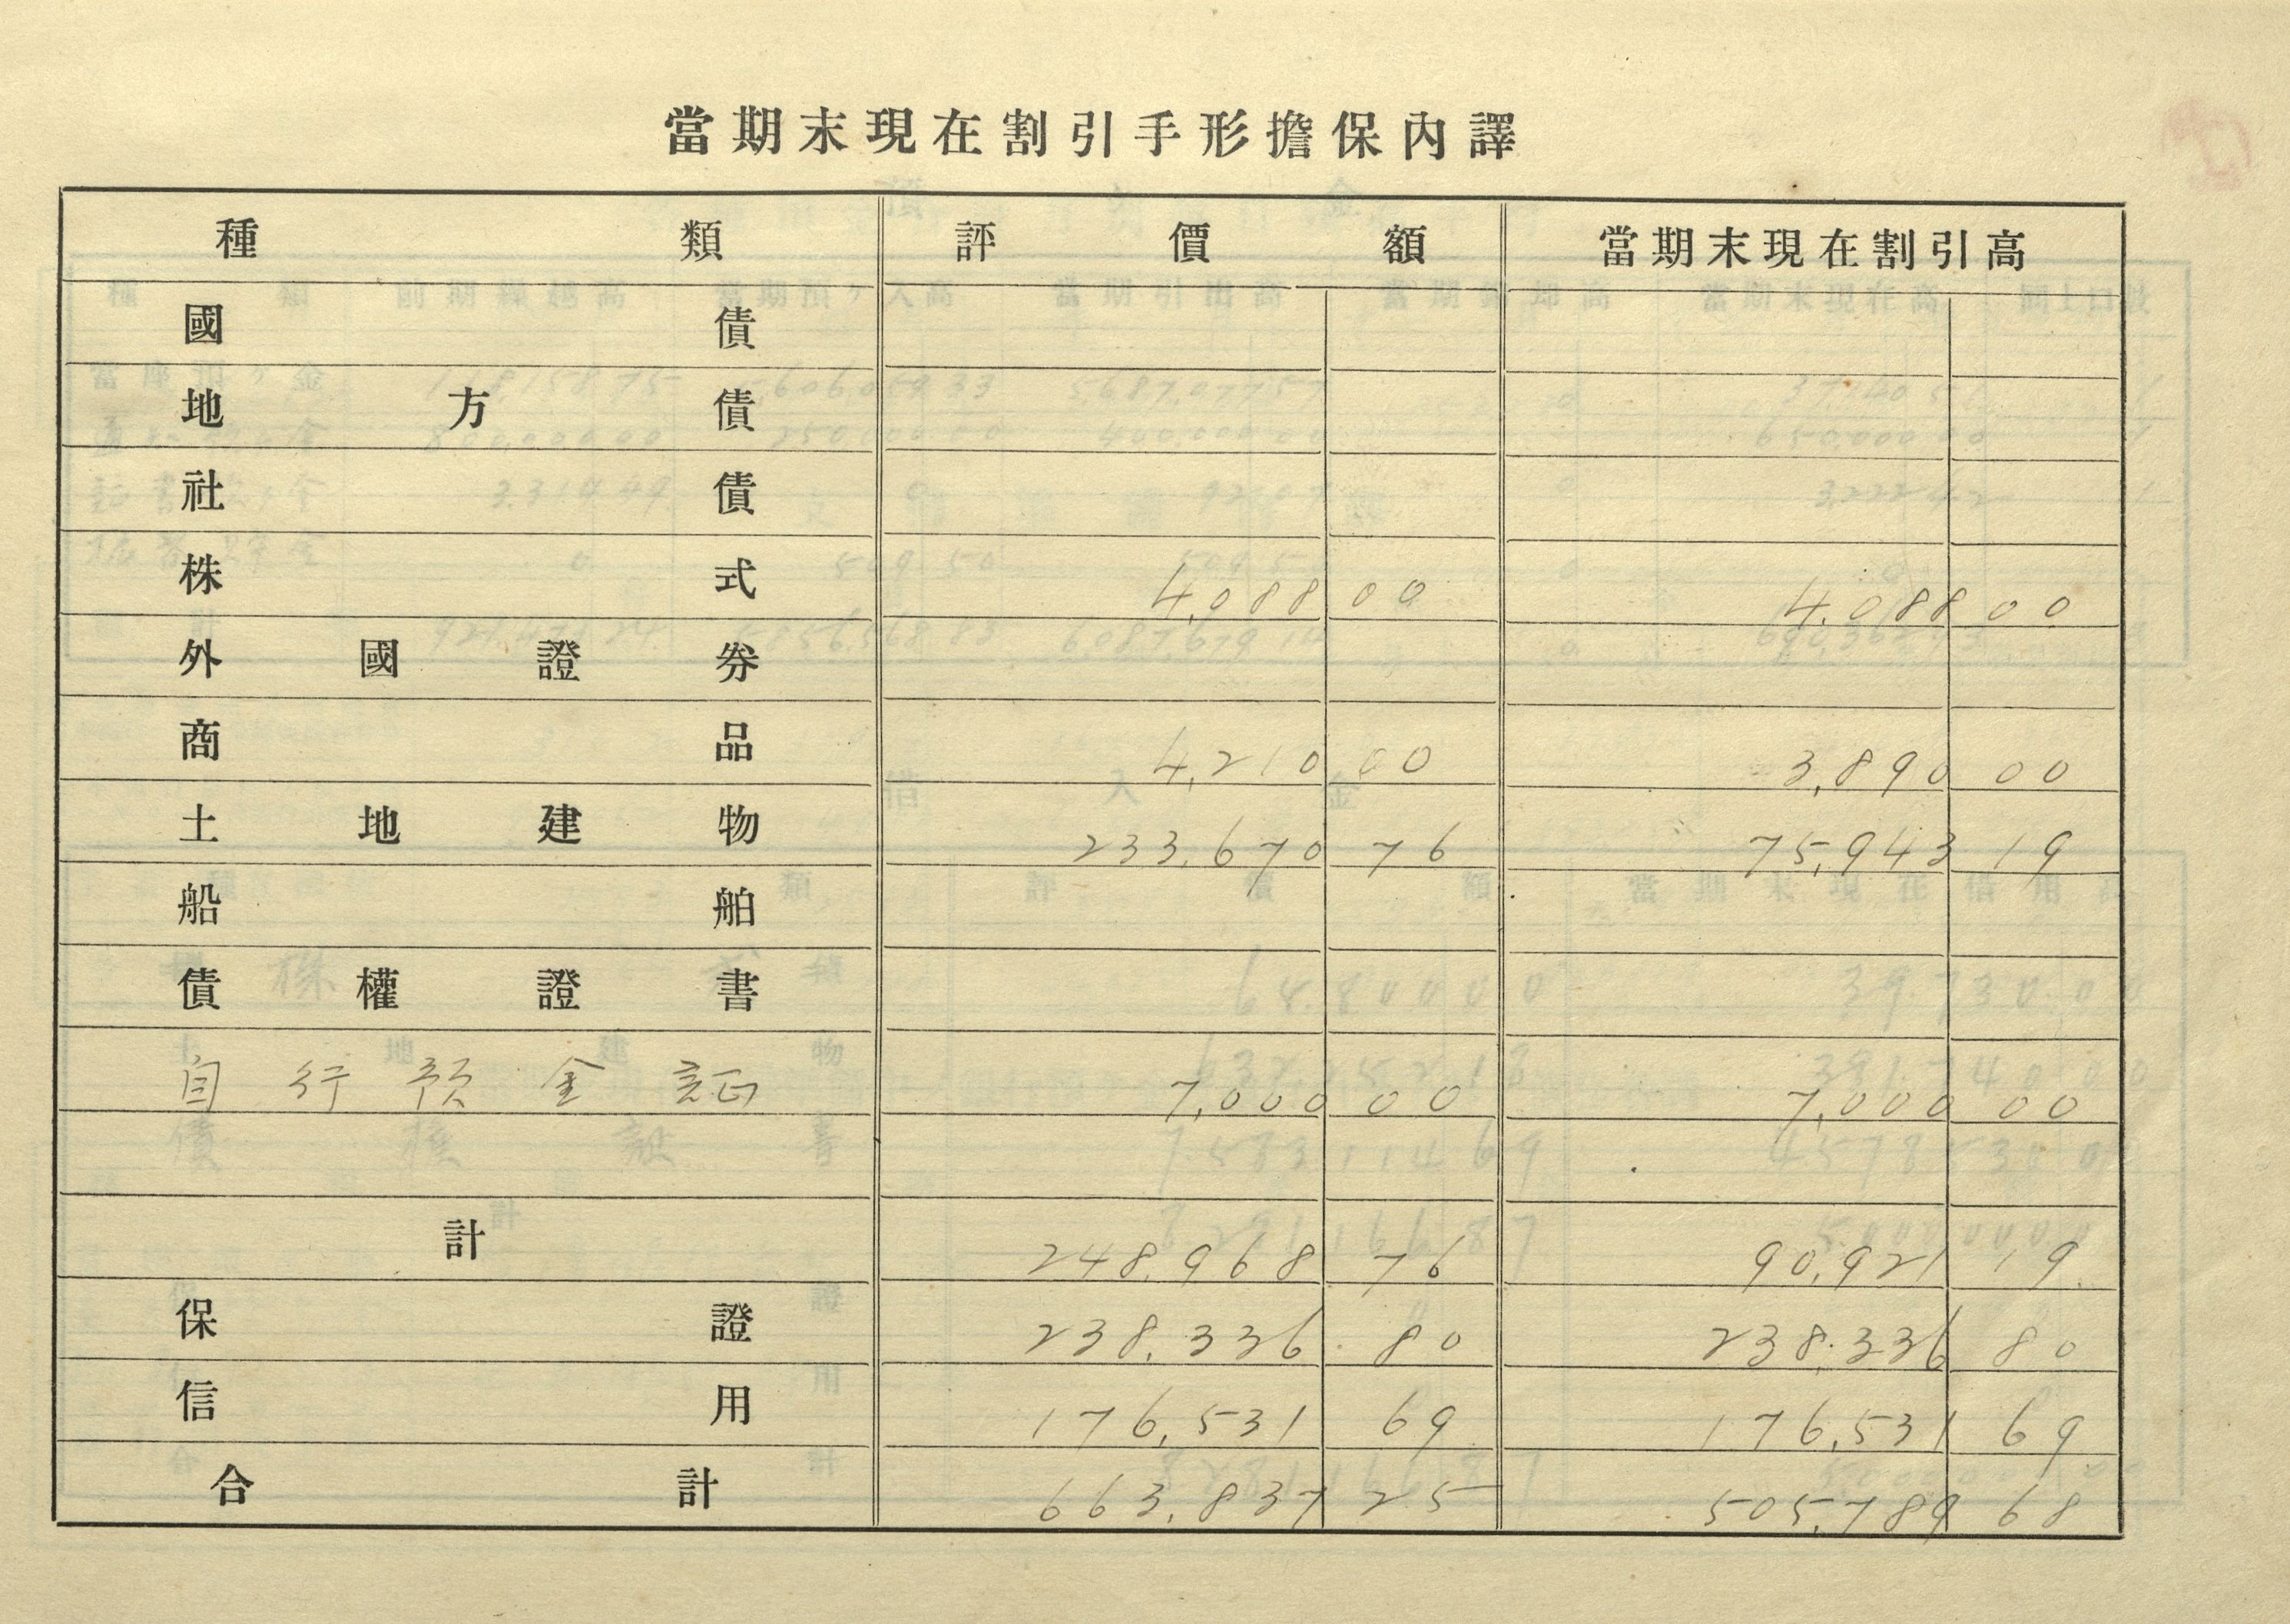 當期末現在割引手形擔保內譯
種類 評價額 當期末現在割引高
國債
地方債
社債
株式 4,088 00 4,088 00
外國證券
商品 4,210 00 3,890 00
土地建物 233,670 76 75,943 19
船舶
債權證書
自行預金証 7,000 00 7,000 00
計 248,968 76 90,921 19
保證 238,336 80 238,336 80
信用 176,531 69 176,531 69
合計 663,837 25 505,789 68